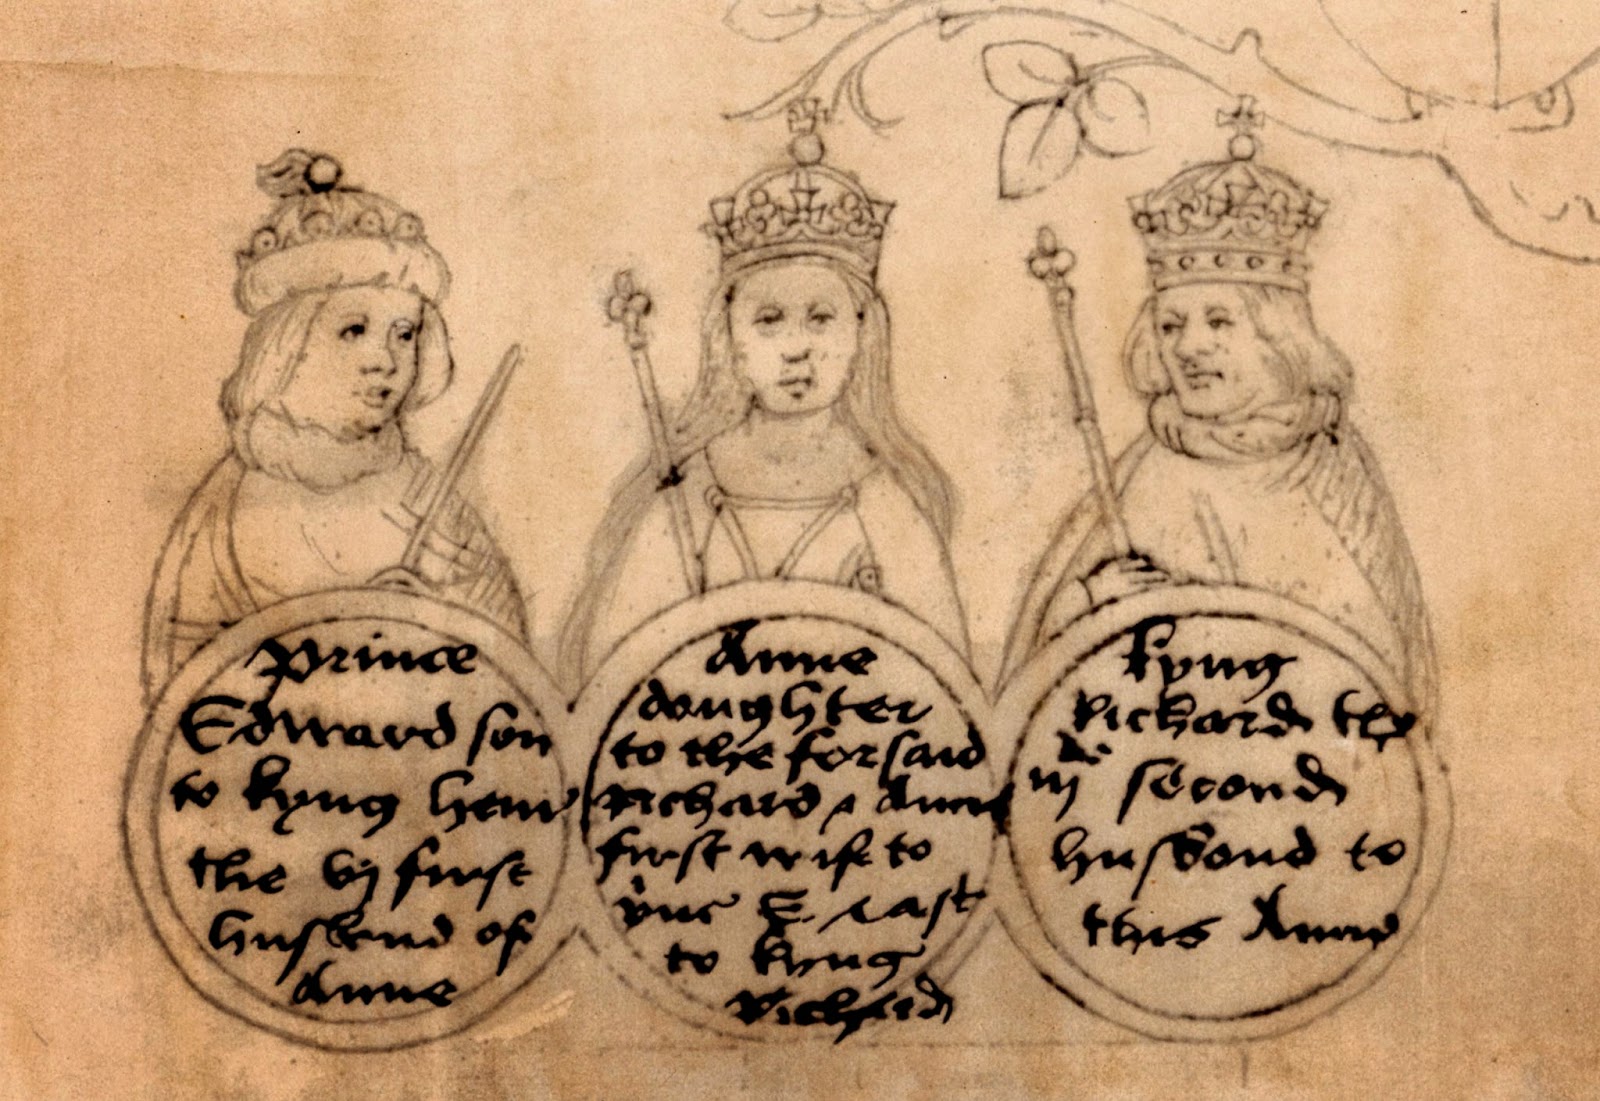 prince
Edward son
to kyng henr
the vj first
husbend of
Anne
Anne
doughter
to the forsaid
Richard & Anne
first wife to
E. & last
to kyng
Richard
kyng
Richard the
iijde second
husbond to
this Anne